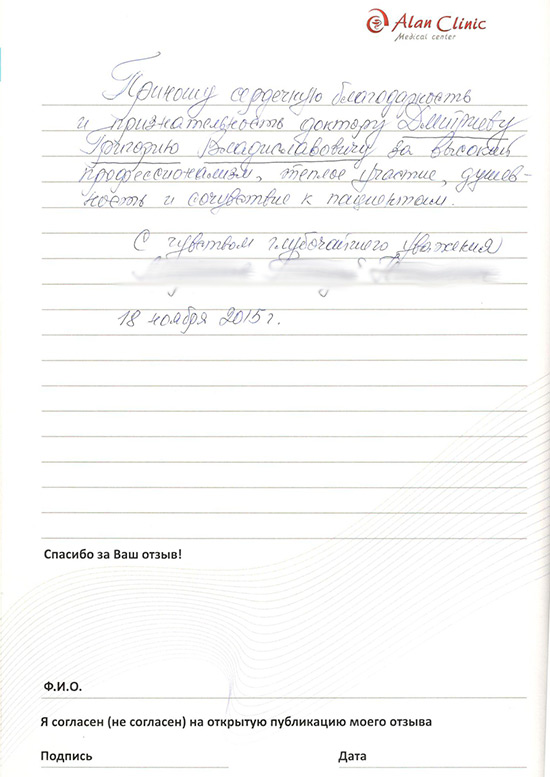 Alan Clinic
Medical center
Приношу сердечную благодарность
и признательность доктору Дмитриеву
Григорию Владиславовичу за высокий
профессионализм, теплое участие, душев-
ность и сочувствие к пациентам.
С чувством глубочайшего уважения
18 ноября 2015 г.
Спасибо за Ваш отзыв!
Ф.И.О.
Я согласен (не согласен) на открытую публикацию моего отзыва
Подпись Дата